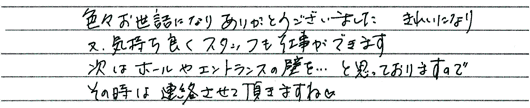 色々お世話になりありがとうございました　きれいになり
又、気持ち良くスタッフも仕事ができます
次はホールやエントランスの壁を…と思っておりますので
その時は連絡させて頂きますね